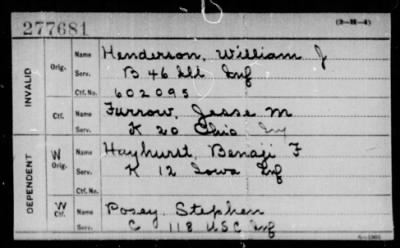 277681
(3-H-4)
INVALID
Orig.
Name Henderson, William J
Serv. B 46 Ill Inf
Ctf. No. 602095
Ctf.
Name Furrow, Jesse M
Serv. K 20 Ohio Inf
DEPENDENT
W
Orig.
Name Hayhurst, Benaji F
Serv. K 12 Iowa Inf
Ctf. No.
W
Ctf.
Name Posey, Stephen
Serv. C 118 USC Inf